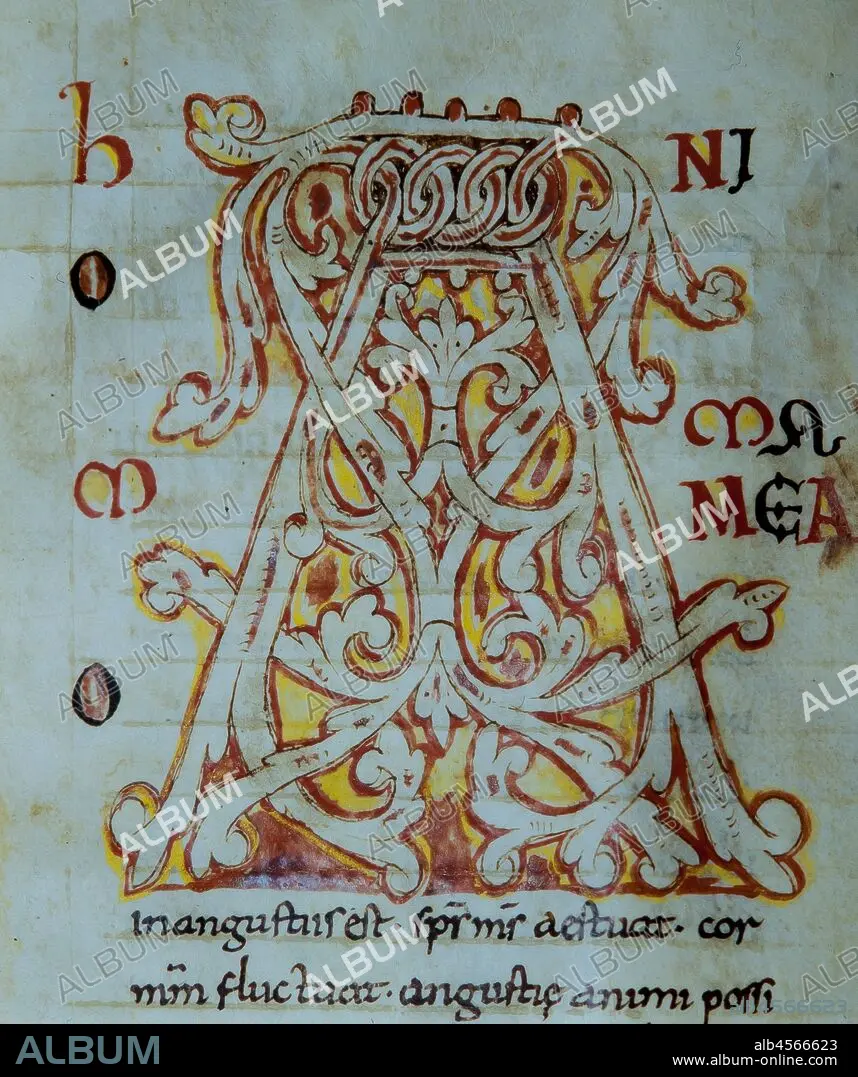 hOmO
A
NI
mA
MEA
in anguſtiis est · sp̄s m̄s aeſtuat · cor
m̄m fluctuat · anguſtię animi poſſi
ALBUM
alb4566623
www.album-online.com